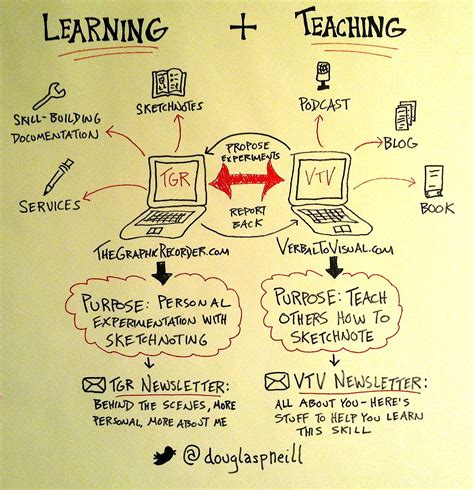 LEARNING + TEACHING
SKILL-BUILDING
DOCUMENTATION
SKETCHNOTES
SERVICES
PODCAST
BLOG
BOOK
PROPOSE
EXPERIMENTS
TGR
VTV
REPORT
BACK
THEGRAPHICRECORDER.COM
VERBALTOVISUAL.COM
PURPOSE: PERSONAL
EXPERIMENTATION WITH
SKETCHNOTING
PURPOSE: TEACH
OTHERS HOW TO
SKETCHNOTE
TGR NEWSLETTER:
BEHIND THE SCENES, MORE
PERSONAL, MORE ABOUT ME
VTV NEWSLETTER:
ALL ABOUT YOU - HERE'S
STUFF TO HELP YOU LEARN
THIS SKILL
@douglaspneill